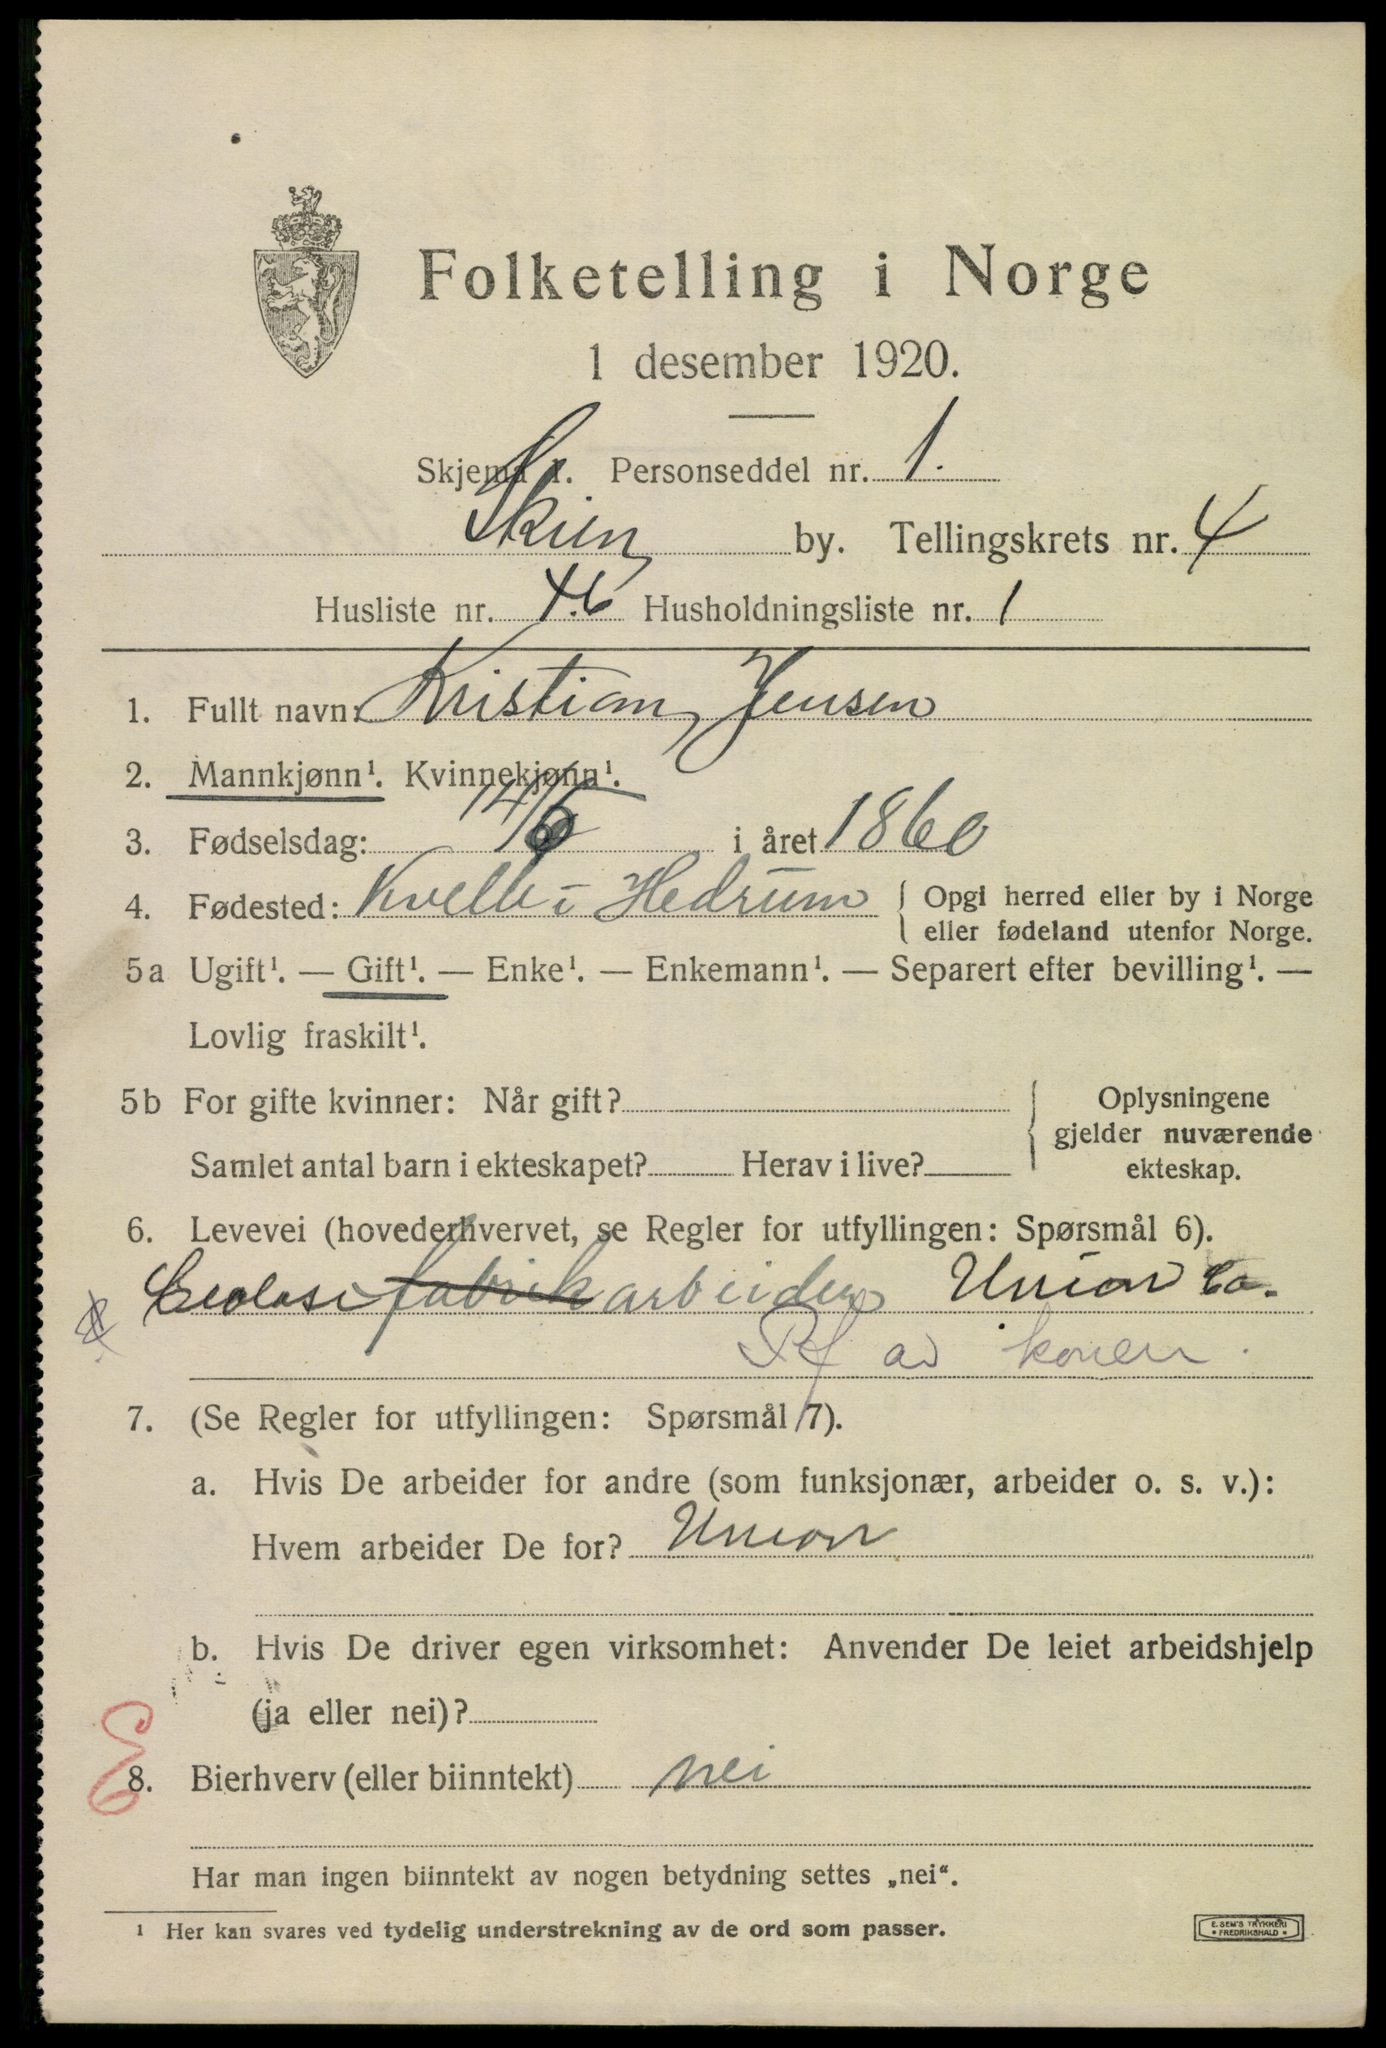 Folketelling i Norge
1 desember 1920.
Skjema 1. Personseddel nr. 1.
Skien by. Tellingskrets nr. 4
Husliste nr. 46 Husholdningsliste nr. 1
1. Fullt navn: Kristian Jensen
2. Mannkjønn¹. Kvinnekjønn¹.
3. Fødselsdag: 14/5 i året 1860
4. Fødested: Kvelle i Hedrum { Opgi herred eller by i Norge
eller fødeland utenfor Norge.
5a Ugift¹. — Gift¹. — Enke¹. — Enkemann¹. — Separert efter bevilling¹. —
Lovlig fraskilt¹.
5b For gifte kvinner: Når gift? { Oplysningene
gjelder nuværende
Samlet antal barn i ekteskapet? Herav i live? ekteskap.
6. Levevei (hovederhvervet, se Regler for utfyllingen: Spørsmål 6).
fabrikarbeider Union Co.
av konen.
7. (Se Regler for utfyllingen: Spørsmål 7).
a. Hvis De arbeider for andre (som funksjonær, arbeider o. s. v.):
Hvem arbeider De for? Union
b. Hvis De driver egen virksomhet: Anvender De leiet arbeidshjelp
(ja eller nei)?
8. Bierhverv (eller biinntekt) nei
Har man ingen biinntekt av nogen betydning settes „nei“.
¹ Her kan svares ved tydelig understrekning av de ord som passer.
E. SEM'S TRYKKERI
• FREDRIKSHALD •